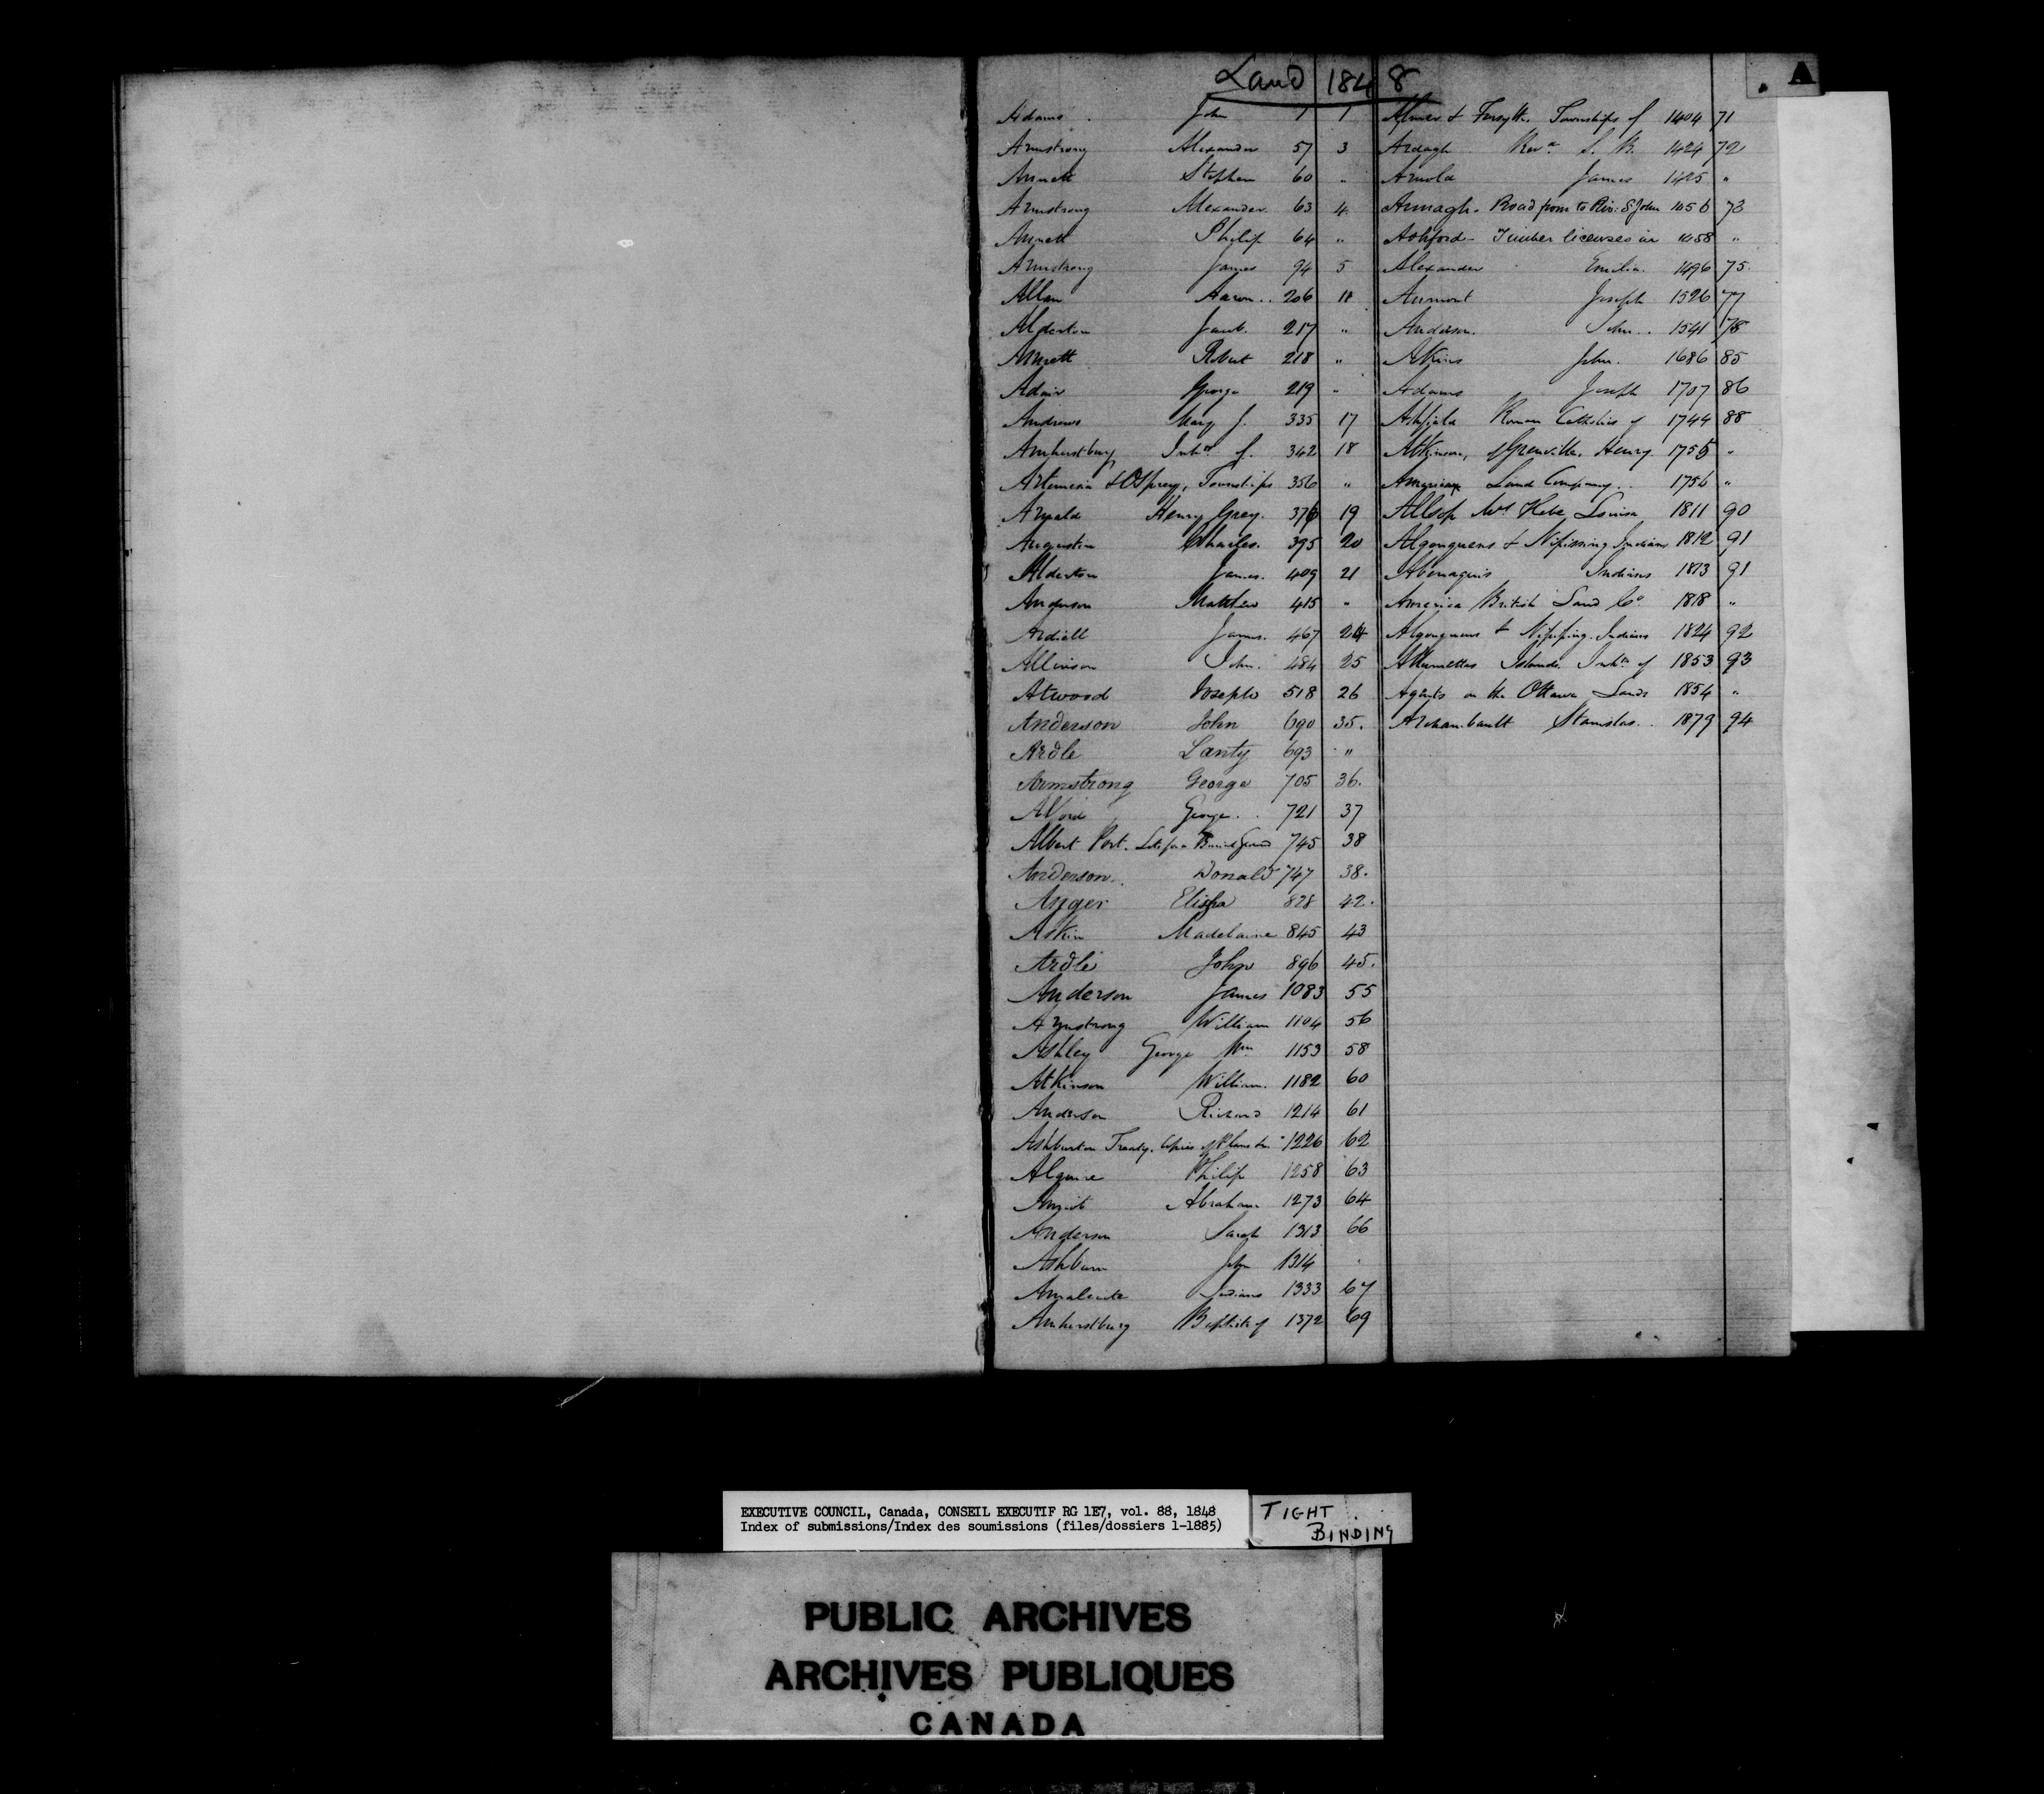 Land 1848
A
Adams John 1 1
Armstrong Alexander 57 3
Annett Stephen 60 "
Armstrong Alexander 63 4
Annett Philip 64 "
Armstrong James 94 5
Allan Aaron 206 11
Alderton Jacob 217 "
Annett Robert 218 "
Adair George 219 "
Andrews Mary J. 335 17
Amherstburg Inhts of 342 18
Artemesia & Osprey, Townships 356 "
Arnald Henry Grey 376 19
Augustin Charles 395 20
Alderton James 409 21
Anderson Matthew 415 "
Ardiell James 467 24
Allinson John 484 25
Atwood Joseph 518 26
Anderson John 690 35.
Ardle Lanty 693 "
Armstrong George 705 36.
Alford George 721 37
Albert Port. Lots for a Burial Ground 745 38
Anderson Donald 747 38.
Anger Elisha 828 42.
Askin Madelaine 845 43
Ardle John 896 45.
Anderson James 1083 55
Armstrong William 1104 56
Ashley George Wm 1153 58
Atkinson William 1182 60
Anderson Richard 1214 61
Ashburton Treaty. Copies of Plans &c. 1226 62
Alguire Philip 1258 63
Abraham 1273 64
Anderson Sarah 1313 66
Ashburn John 1314
Amalecite Indians 1333 67
Amherstburg Baptists of 1372 69
Aylmer & Forsyth. Townships of 1404 71
Ardagh Revd. S. B. 1424 72
Arnold James 1425 "
Armagh. Road from to Riv: St John 1456 73
Ashford. Timber licenses in 1458 "
Alexander Emilia 1496 75.
Aumont Joseph 1526 77
Anderson John 1541 78
Atkins John 1686 85
Adams Joseph 1707 86
Ashfield Roman Catholics of 1744 88
Atkinson, Grenville, Henry 1755 "
American Land Company 1756 "
Allsop Mrs Hebe Louisa 1811 90
Algonquens & Nipissing Indians 1812 91
Abenaquis Indians 1813 91
America British Land Co. 1818 "
Algonquens & Nipissing Indians 1824 92
Allumettes Islands Inhts of 1853 93
Agents on the Ottawa Lands 1854 "
Archambault Stanislas 1879 94
EXECUTIVE COUNCIL, Canada, CONSEIL EXECUTIF RG 1E7, vol. 88, 1848
Index of submissions/Index des soumissions (files/dossiers 1-1885)
TIGHT
BINDING
PUBLIC ARCHIVES
ARCHIVES PUBLIQUES
CANADA